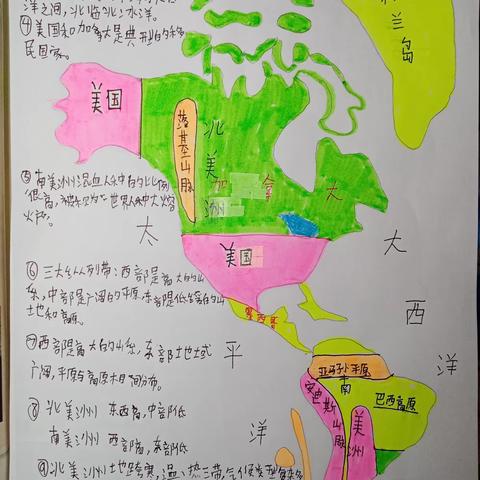 洋之间,北临北冰洋。
④美国和加拿大是典型的移
民国家。
⑤南美洲混血人种的比例
很高,被称为"世界人种大熔
炉"。
⑥三大纵列带:西部是高大的山
系,中部是广阔的平原,东部是低缓的山
地和高原。
⑦西部是高大的山系,东部地域
广阔,平原与高原相间分布。
⑧北美洲 东西高,中部低
南美洲 西部高,东部低
⑨北美洲地跨寒、温、热三带,气候类型复杂多
兰岛
美国
落基山脉
北美洲
加拿大
美国
墨西哥
大西洋
太平洋
亚马孙平原
巴西高原
安迪斯山脉
南美洲